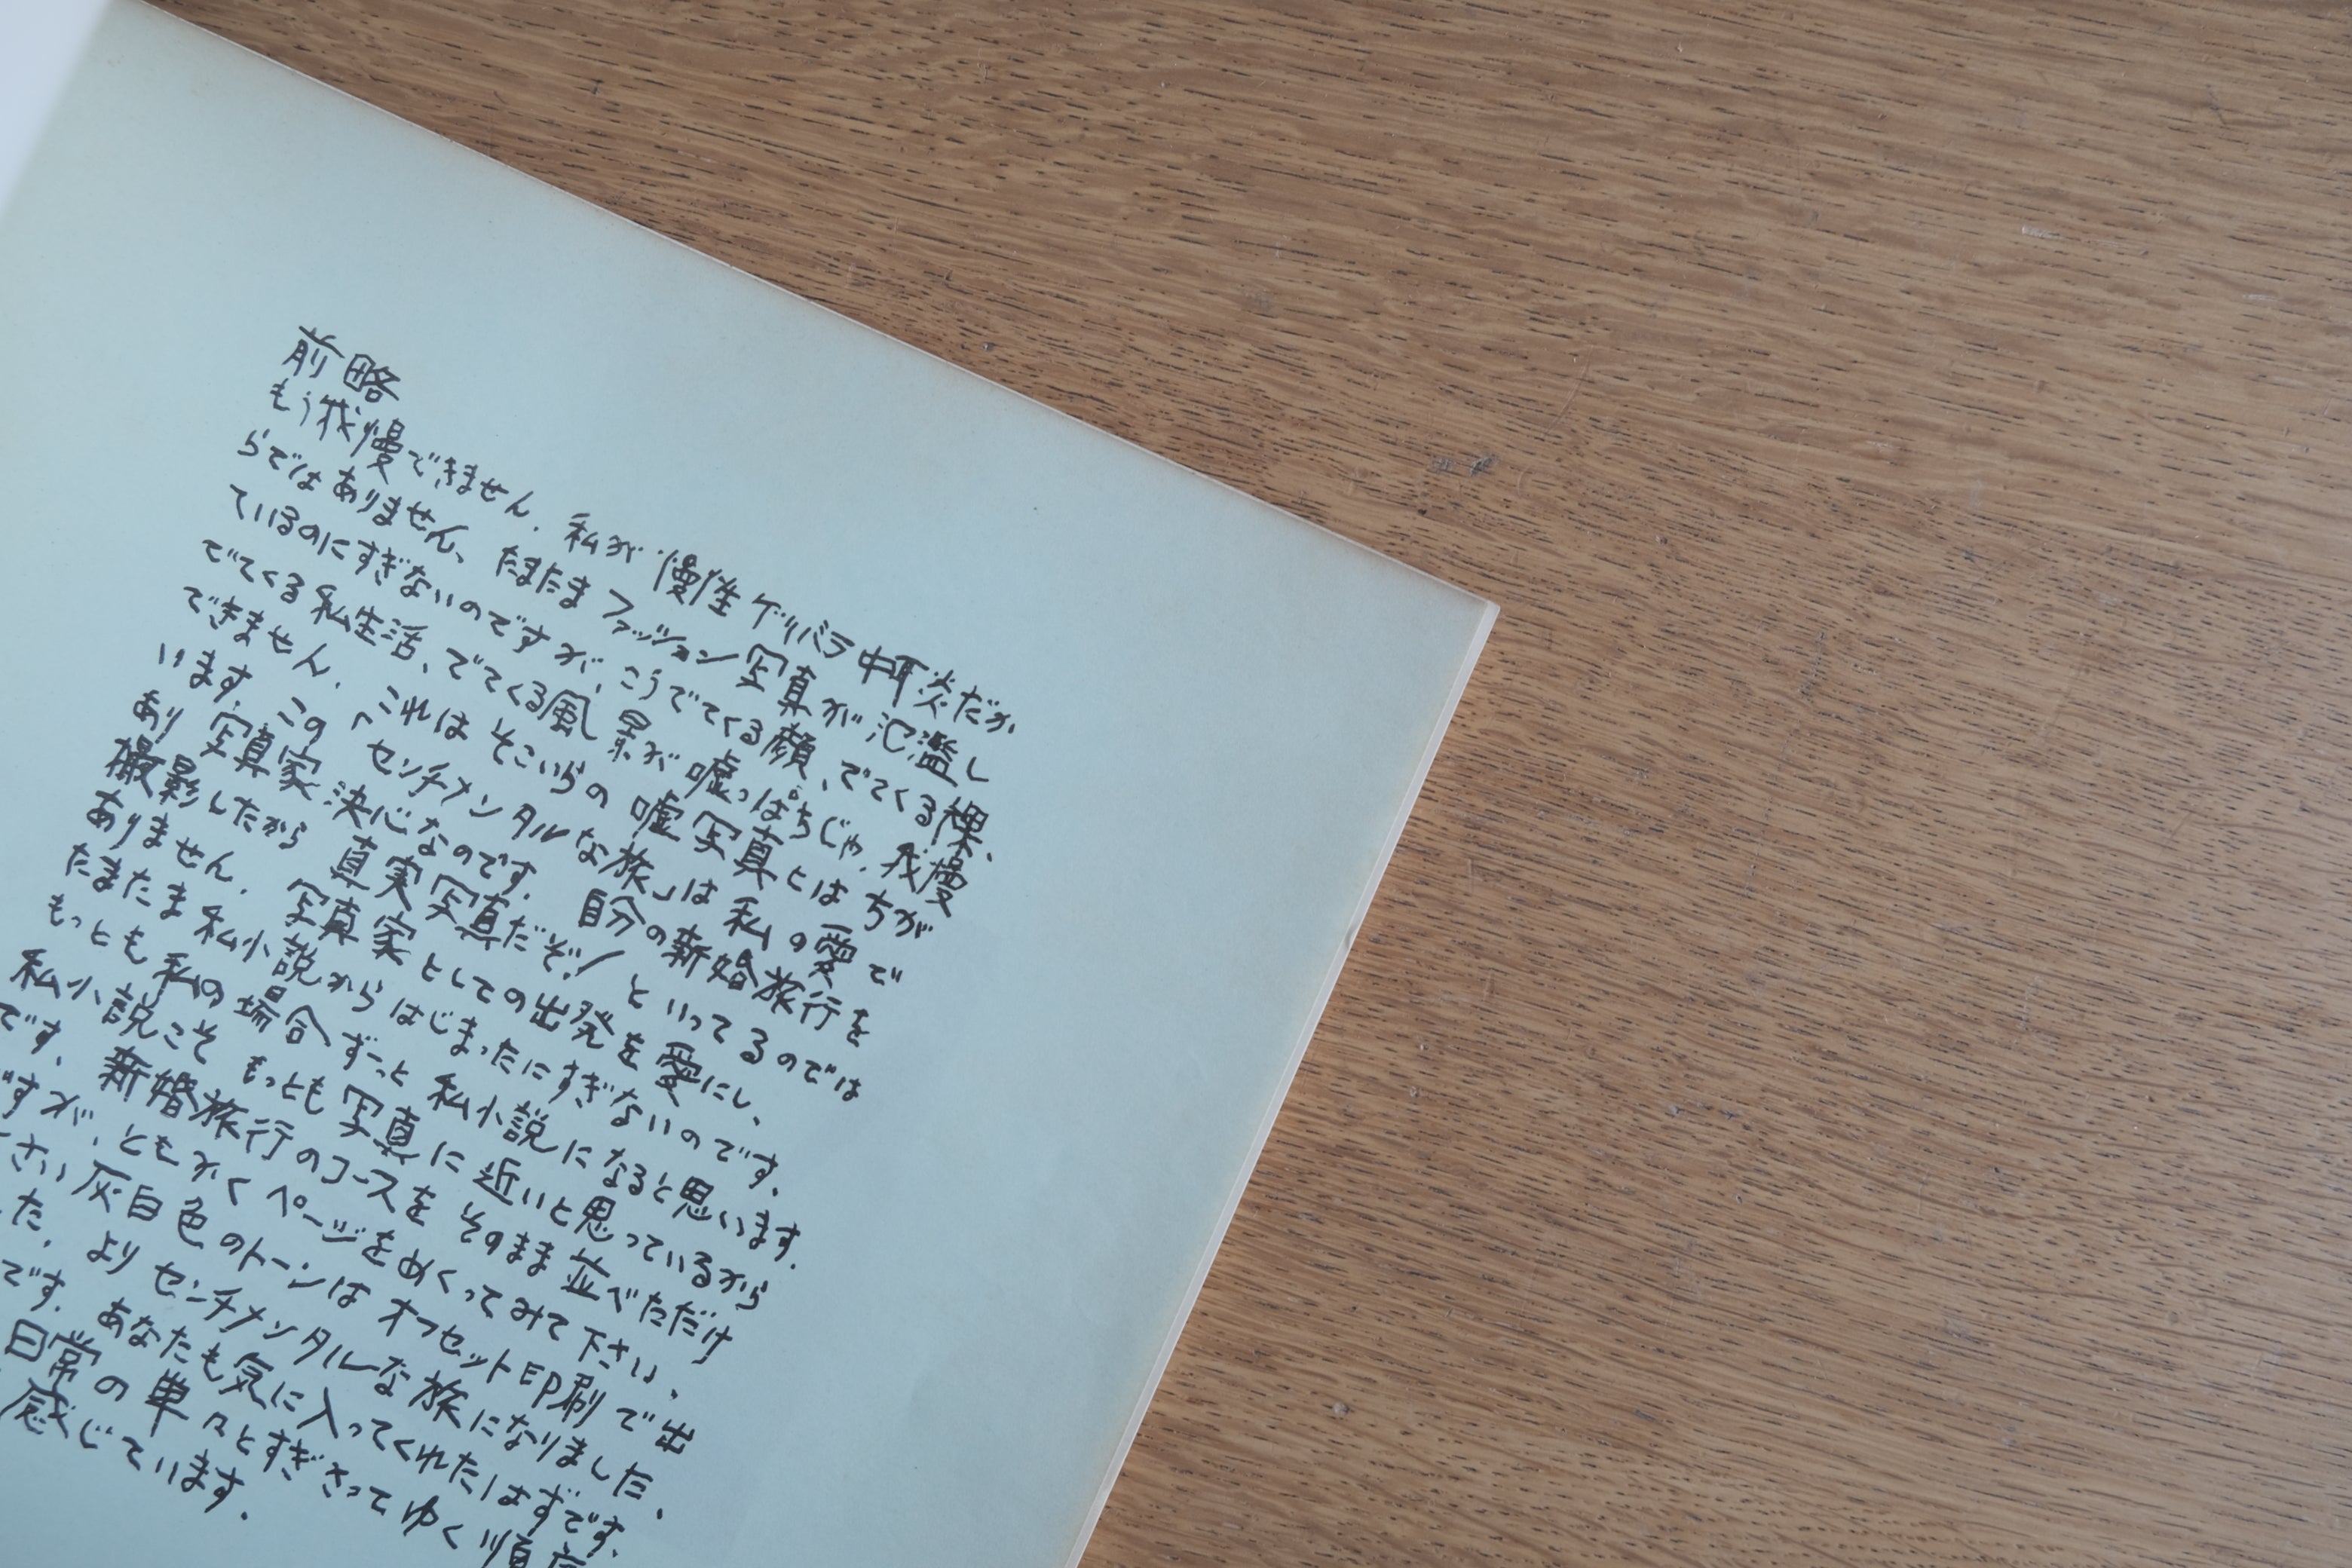 前略
もう我慢できません。私が慢性ゲリバラ中耳炎だか
らではありません、たまたまファッション写真が氾濫し
ているのにすぎないのですが、こうでてくる顔、でてくる裸、
でてくる私生活、でてくる風景が嘘っぱちじゃ、我慢
できません。これはそこいらの嘘写真とはちが
います。この「センチメンタルな旅」は私の愛で
あり写真家決心なのです。自分の新婚旅行を
撮影したから真実写真だぞ!といってるのでは
ありません。写真家としての出発を愛にし、
たまたま私小説からはじまったにすぎないのです。
もっとも私の場合ずーっと私小説になると思います。
私小説こそもっとも写真に近いと思っているから
です。新婚旅行のコースをそのまま並べただけ
ですが、ともかくページをめくってみて下さい。
さい灰白色のトーンはオフセット印刷で出
た。よりセンチメンタルな旅になりました。
です。あなたも気に入ってくれたはずです。
日常の単々とすぎさってゆく順序
感じています。